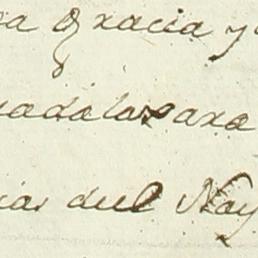 Gracia y
uadalaxara
cias del Nay